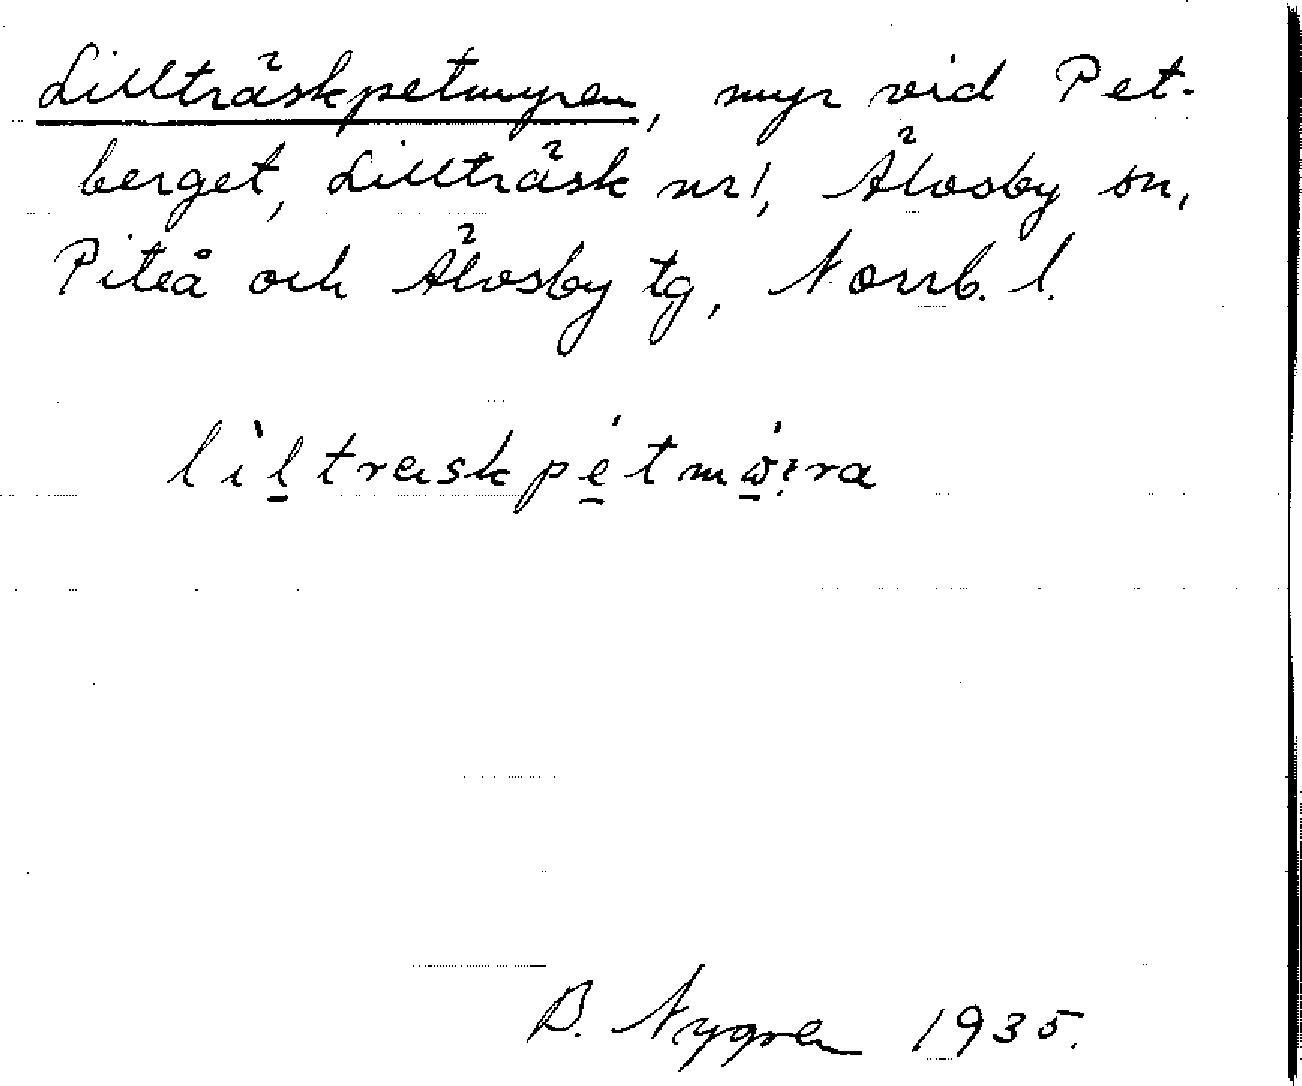 Lillträskpetmyren, myr vid Pet-
berget, Lillträsk nr 1, Älvsby sn,
Piteå och Älvsby tg, Norrb. l.
B. Nygren 1935.